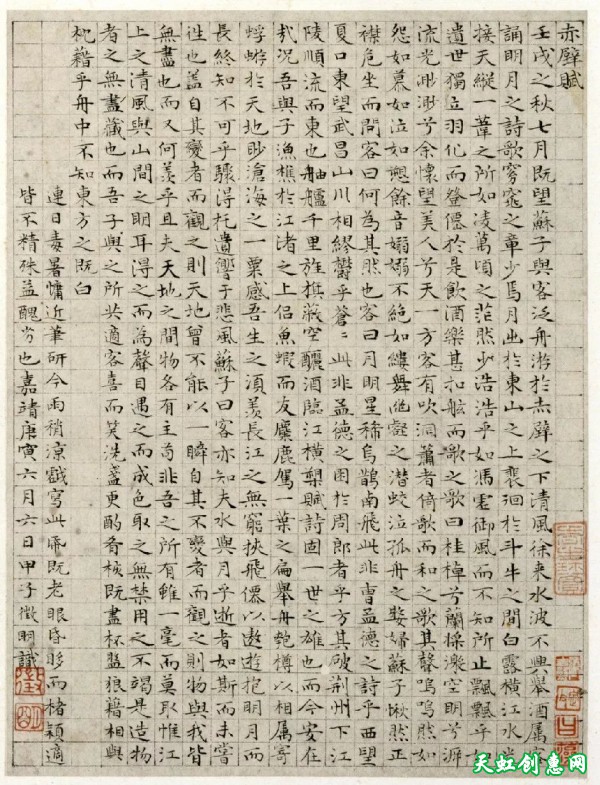 赤壁賦
壬戌之秋七月既望蘇子與客泛舟游於赤壁之下清風徐來水波不興舉酒屬客
誦明月之詩歌窈窕之章少焉月出於東山之上裴徊於斗牛之間白露橫江水光
接天縱一葦之所如凌萬頃之茫然浩浩乎如馮虛御風而不知所止飄飄乎如
遺世獨立羽化而登僊於是飲酒樂甚扣舷而歌之歌曰桂棹兮蘭槳擊空明兮泝
流光渺渺兮余懷望美人兮天一方客有吹洞簫者倚歌而和之其聲嗚嗚然如
怨如慕如泣如愬餘音嫋嫋不絕如縷舞幽壑之潛蛟泣孤舟之嫠婦蘇子愀然正
襟危坐而問客曰何為其然也客曰月明星稀烏鵲南飛此非曹孟德之詩乎西望
夏口東望武昌山川相繆鬱乎蒼〻此非孟德之困於周郎者乎方其破荊州下江
陵順流而東也舳艫千里旌旗蔽空釃酒臨江橫槊賦詩固一世之雄也而今安在
哉況吾與子漁樵於江渚之上侶魚蝦而友麋鹿駕一葉之扁舟舉匏樽以相屬寄
蜉蝣於天地眇滄海之一粟感吾生之須羨長江之無窮挾飛僊以遨遊抱明月而
長終知不可乎驟得托遺響于悲風蘇子曰客亦知夫水與月乎逝者如斯而未嘗
往也蓋自其變者而觀之則天地曾不能以一瞬自其不變者而觀之則物與我皆
無盡也而又何羨乎且夫天地之間物各有主苟非吾之所有雖一毫而莫取惟江
上之清風與山間之明月耳得之而為聲目遇之而成色取之無禁用之不竭是造物
者之無盡藏也而吾子與之所共適客喜而笑洗盞更酌肴核既盡杯盤狼藉相與
枕藉乎舟中不知東方之既白
連日毒暑慵近筆研今雨稍涼戲寫此紙既老眼昏眵而楮穎適
皆不精殊益醜劣也嘉靖庚寅六月六日甲子徵明識
徵明
天虹创意网